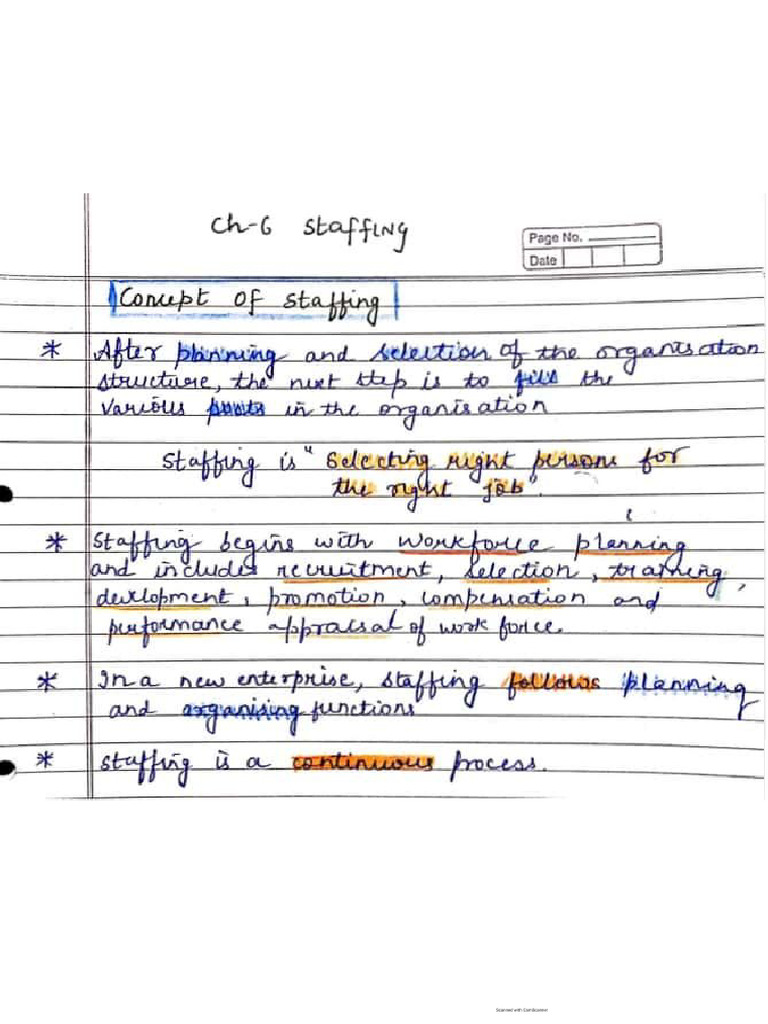 Ch-6 Staffing
Page No.
Date
Concept of staffing
* After planning and selection of the organisation
structure, the next step is to fill the
various posts in the organisation
Staffing is "Selecting right persons for
the right job".
* Staffing begins with workforce planning
and includes recruitment, selection, training,
development, promotion, compensation and
performance appraisal of work force.
* In a new enterprise, staffing follows planning
and organising functions
* Staffing is a continuous process.
Scanned with CamScanner